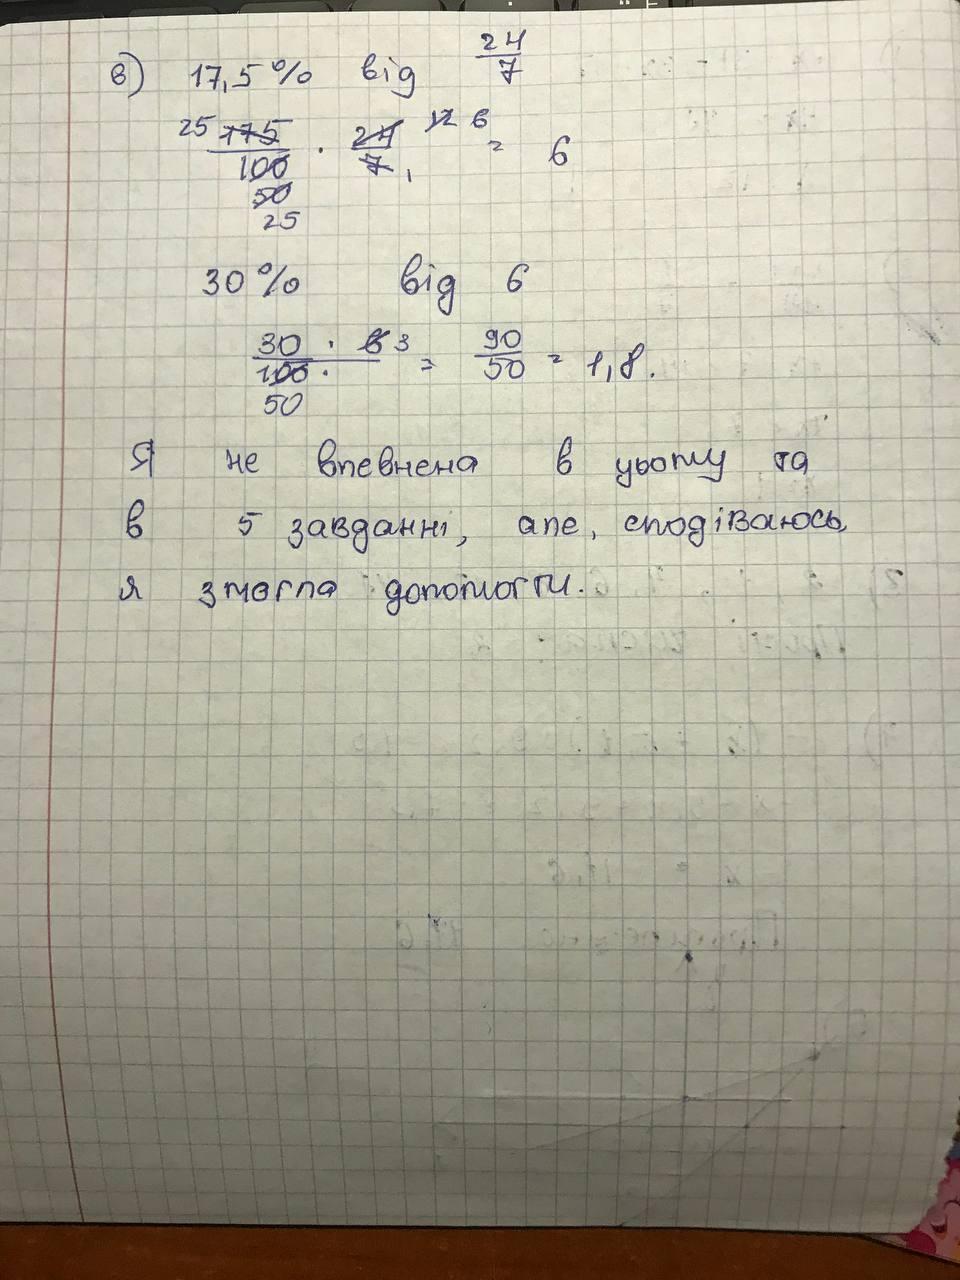 в) 17,5% від 24/7
25 175/100 · 24/7 12 6 = 6
50 1
25
30% від 6
30 · 6 3 / 100 · = 90/50 = 1,8.
50
Я не впевнена в цьому та
в 5 завданні, але, сподіваюсь,
я змогла допомогти.